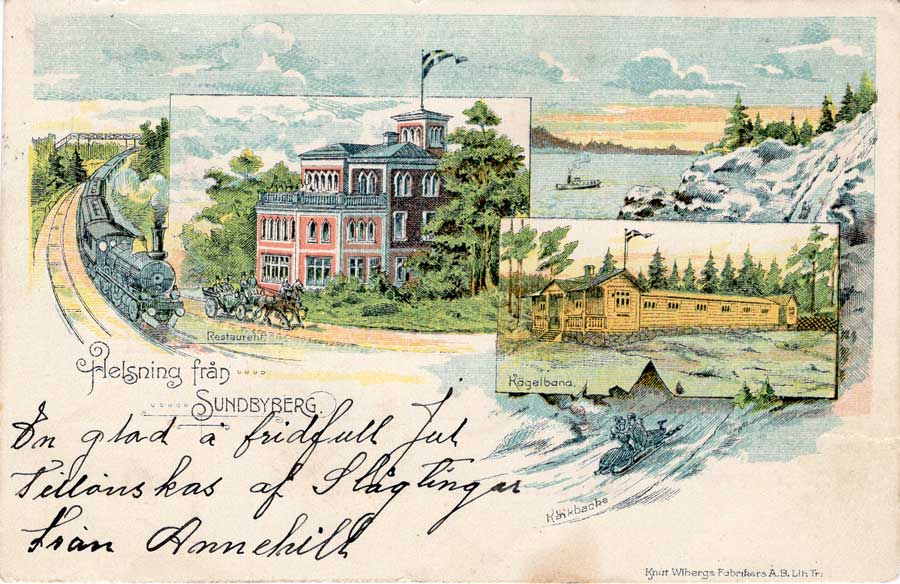 Restaurent.
Kägelbana.
Helsning från
SUNDBYBERG.
En glad å fridfull Jul
Tillönskas af Slägtingar
från Annehill
Kälkbacke
Knut Wibergs Fabrikers A.B. Lith Tr: